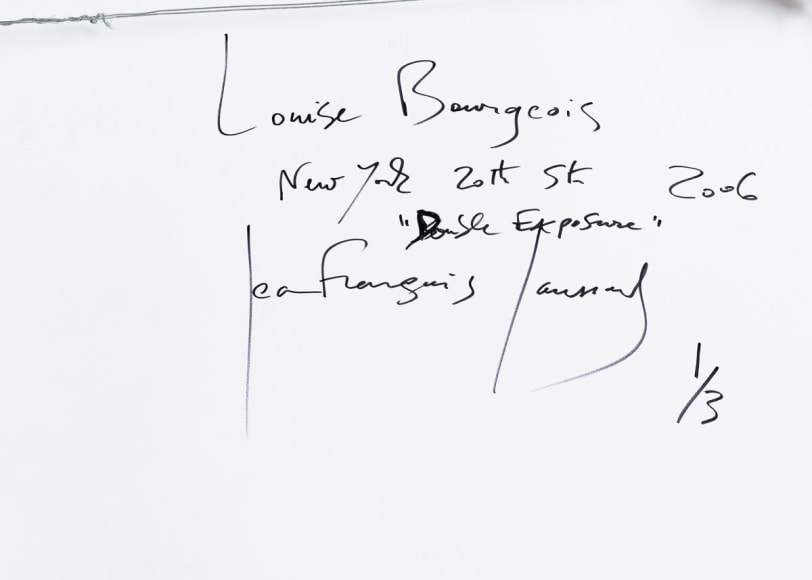 Louise Bourgeois
New York 20th St 2006
"Double Exposure"
Jean François Jaussaud
1/3